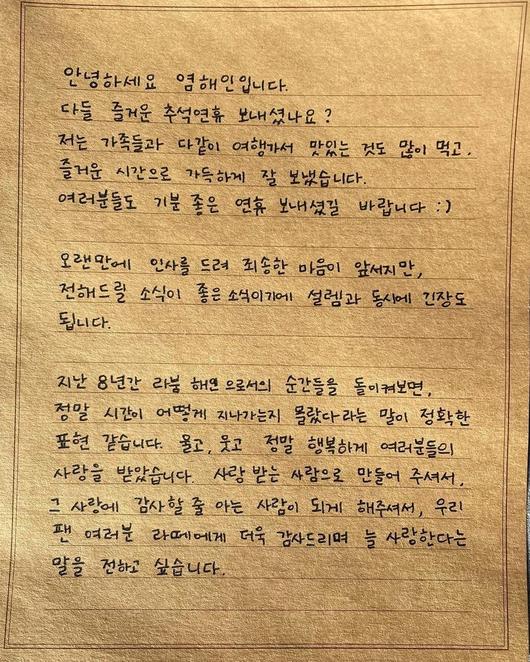 안녕하세요 염해인입니다.
다들 즐거운 추석연휴 보내셨나요?
저는 가족들과 다같이 여행가서 맛있는 것도 많이 먹고,
즐거운 시간으로 가득하게 잘 보냈습니다.
여러분들도 기분 좋은 연휴 보내셨길 바랍니다 :)
오랜만에 인사를 드려 죄송한 마음이 앞서지만,
전해드릴 소식이 좋은 소식이기에 설렘과 동시에 긴장도
됩니다.
지난 8년간 라붐 해인으로서의 순간들을 돌이켜보면,
정말 시간이 어떻게 지나가는지 몰랐다라는 말이 정확한
표현 같습니다. 울고, 웃고 정말 행복하게 여러분들의
사랑을 받았습니다. 사랑 받는 사람으로 만들어 주셔서,
그 사랑에 감사할 줄 아는 사람이 되게 해주셔서, 우리
팬 여러분 라떼에게 더욱 감사드리며 늘 사랑한다는
말을 전하고 싶습니다.